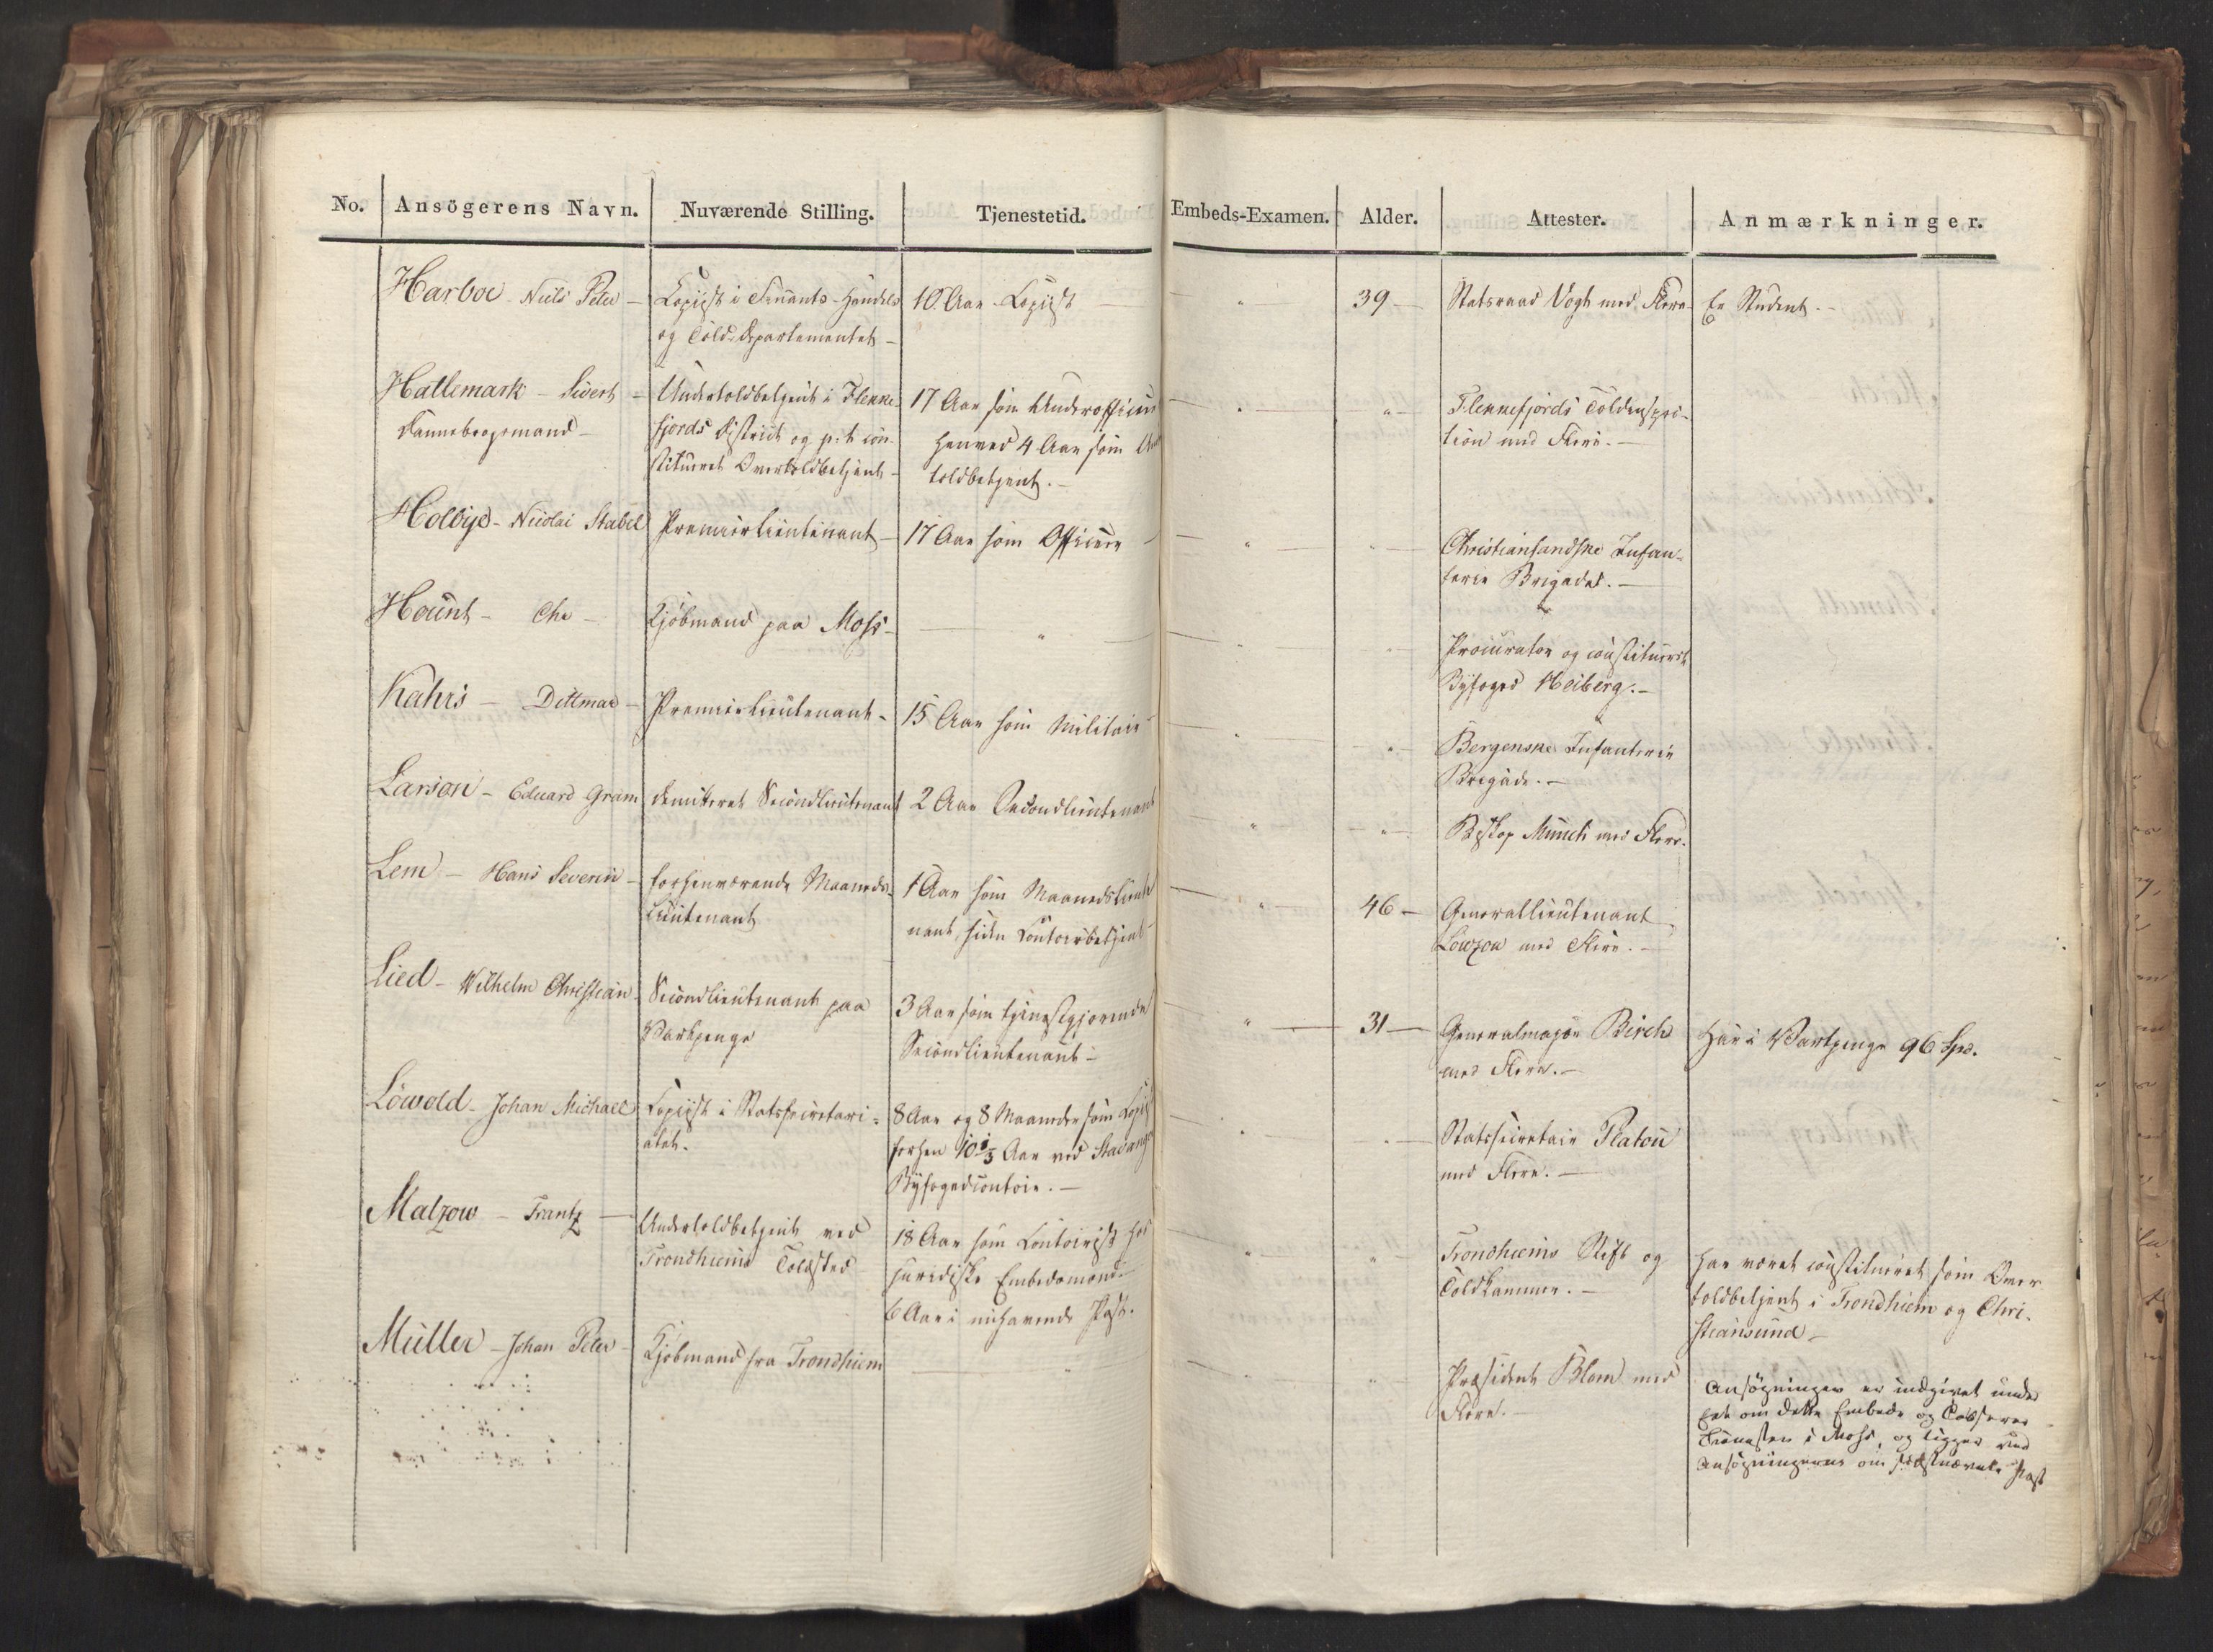 No. Ansögerens Navn. Nuværende Stilling. Tjenestetid. Embeds-Examen. Alder. Attester. Anmærkninger.
Harboe - Niels Peter - Copiist i Finants-Handels 10 Aar Copiist — " — 39 — Statsraad Vogt med Flere. Er Student. -
og Told-Departementet -
Hallemark - Sivert - Undertoldbetjent i Flekke- 17 Aar som Underofficier " " Flekkefjords Toldinspec-
Dannebrogsmand - fjords District og p: t: con- henved 4 Aar som Un tion med Flere. -
stitueret Overtoldbetjent - toldbetjent. -
Holbye - Nicolai Stabel Premierlieutenant - 17 Aar som Officier - " " Christiansandske Infan-
terie Brigade. -
Hount - Chr - Kjöbmand paa Moss - " " " Procurator og constitueret
Byfoged Heiberg. -
Kahrs - Dittmar - Premierlieutenant - 15 Aar som Militair " " Bergenske Infanterie
Brigade. -
Larson - Eduard Gram demitteret Secondlieutenant 2 Aar Secondlieutenant " " Biskop Munch med Flere.
Lem - Hans Severin - forhenværende Maaneds- 1 Aar som Maanedslieute " 46 - Generallieutenant
lieutenant nant, siden Contoirbetjent - Lowzow med Flere. -
Lied - Wilhelm Christian - Secondlieutenant paa 3 Aar som tjenestgjørende " 31 - Generalmajor Birch Har i Vartpenge 96 Spd.
Vartpenge Secondlieutenant - med Flere. -
Löwold - Johan Michael Copiist i Statssecretari- 8 Aar og 8 Maaneder som Copiist " " Statssecretair Platou
atet. forhen 10 1/3 Aar ved Stavanger med Flere. -
Byfogedcontoir. -
Matzow - Frantz - Undertoldbetjent ved 18 Aar som Contoirist hos " " Trondhiems Stift og Har været constitueret som Over
Trondhiems Toldsted juridiske Embedsmænd Toldkammer. - toldbetjent i Trondhiem og Chri-
6 Aar i nuhavende Post. stiansund -
Müller - Johan Peter - Kjöbmand fra Trondhiem " " " Præsident Blom med Ansögningen er indgivet under
Flere. - Eet om dette Embede og
i Moss, og ligger ved
Ansögningerne om sidstnævnte Post